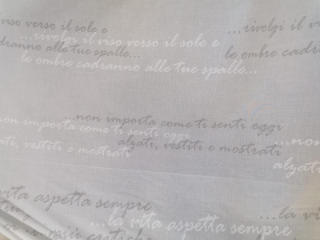 viso verso il sole e
...rivolgi il viso verso il sole e
...rivolgi il vi
adranno alle tue spalle...
le ombre cadranno alle tue spalle...
le ombre cadra
...non importa come ti senti oggi
non importa come ti senti oggi
...non
alzati, vestiti e mostrati
alzati, vestiti e mostrati
alzati
vita aspetta sempre
...la vita aspetta sempre
...la vi